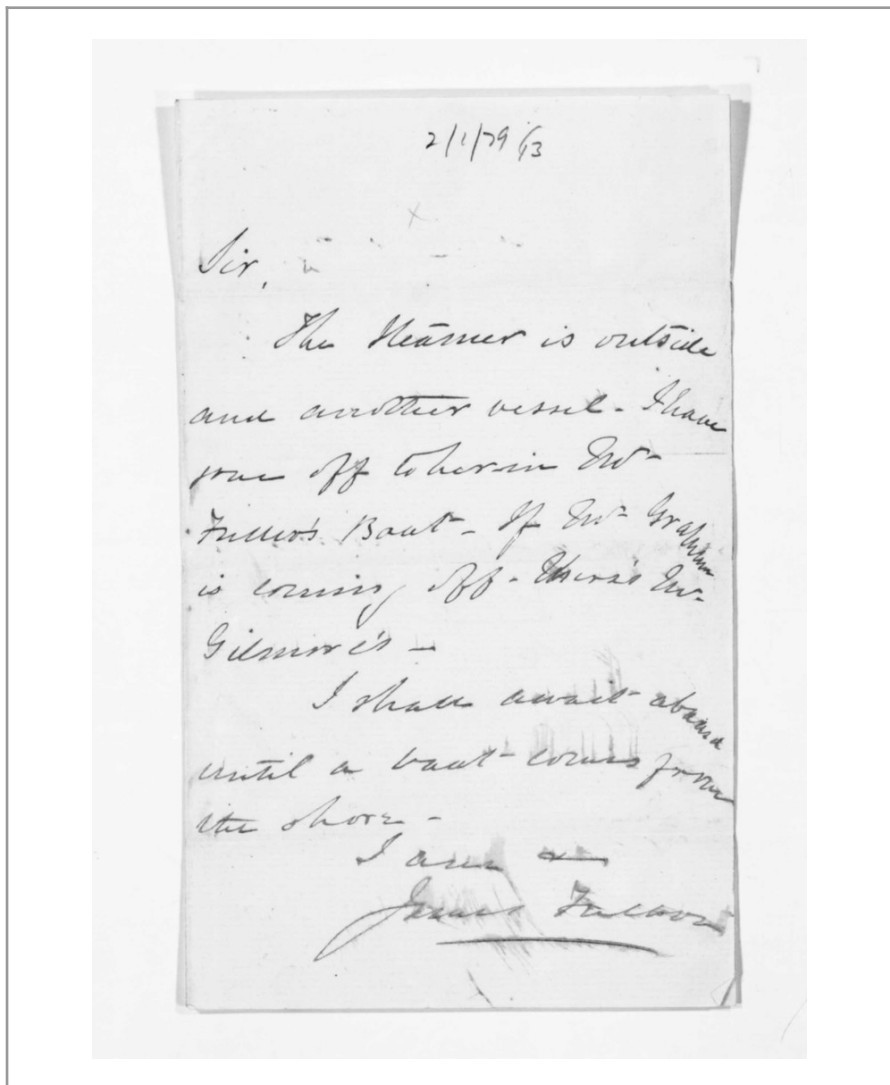 2/1/79 /13
Sir,
The Steamer is outside
and another vessel - I have
gone off to her in Mr
Fulloo's Boat - If Mr Grahame
is coming off - there's Mr
Gilmore's -
I shall await aboard
until a boat comes from
the shore -
I am
James